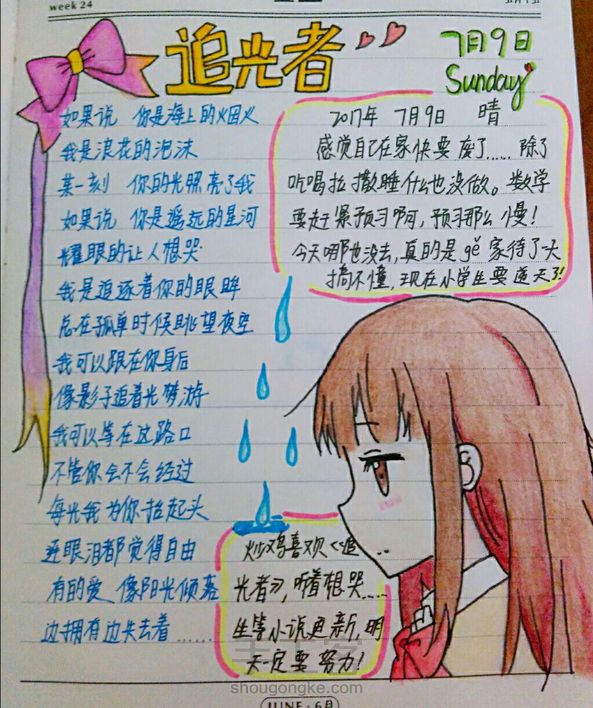 week 24
追光者
7月9日
Sunday
如果说 你是海上的烟火
我是浪花的泡沫
某一刻 你的光照亮了我
如果说 你是遥远的星河
耀眼的让人想哭
我是追逐着你的眼眸
总在孤单时候眺望夜空
我可以跟在你身后
像影子追着光梦游
我可以等在这路口
不管你会不会经过
每当我为你抬起头
连眼泪都觉得自由
有的爱 像阳光倾落
边拥有边失去着……
2017年 7月9日 晴
感觉自己在家快要废了……除了
吃喝拉撒睡什么也没做。数学
要赶紧预习啊,预习那么慢!
今天哪也没去,真的是gé家待了一天
搞不懂,现在小学生要逆天了!!
炒鸡喜欢《追
光者》,听着想哭……
坐等小说更新,明
天一定要努力!
手工客
shougongke.com
JUNE·6月